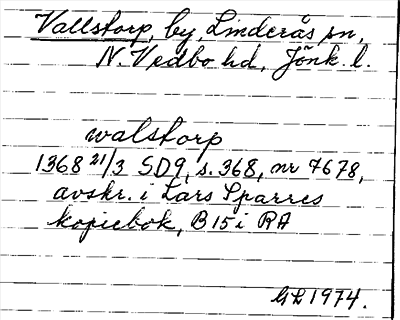 Vallstorp, by, Linderås sn,
N. Vedbo hd, Jönk. l.
walstorp
1368 21/3 SD9, s. 368, nr 7678,
avskr. i Lars Sparres
kopiebok, B 15 i RA
GL 1974.